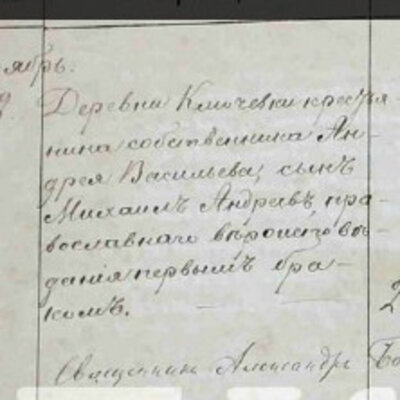 ябрь.
9 Деревни Ключевки крестья
нина собственника Ан-
дрея Васильева, сынъ
Михаилъ Андреевъ пра-
вославнаго вѣроисповѣ-
данія первымъ бра-
комъ. 2
Священникъ Александръ